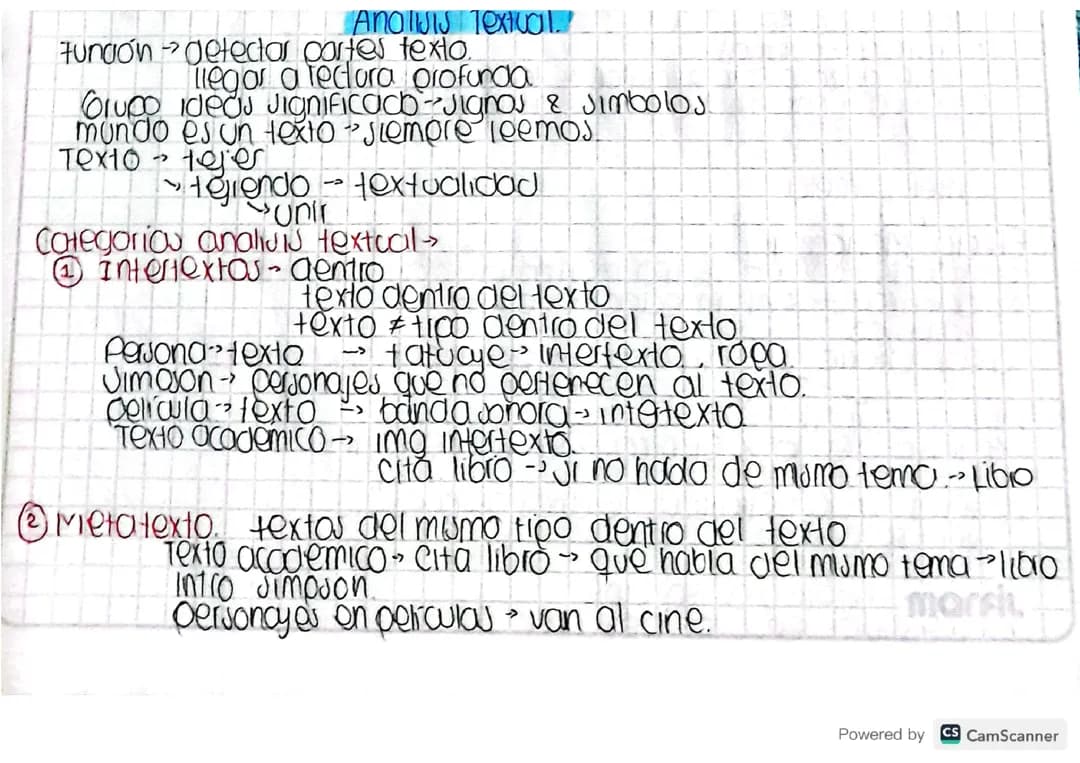 Analisis Textual.
Función → detectar partes texto.
llegar a lectura profunda
Grupo ideas significado → signos & simbolos
mundo es un texto → siempre leemos.
Texto → tejer
↘ tejiendo → textualidad
↘ unir
Categorias analisis textual →
① Intertextos - dentro
texto dentro del texto
texto ≠ tipo dentro del texto
Persona → texto → tatuaje → intertexto, ropa
Simpson → personajes que no pertenecen al texto.
película → texto → banda sonora → intetexto
Texto academico → img intertexto.
cita libro → si no habla de mismo tema. → Libro
② Metatexto. textos del mismo tipo dentro del texto
Texto academico → cita libro → que habla del mismo tema → libro
Intro Simpson.
personajes en películas → van al cine.
marsh.
Powered by CS CamScanner